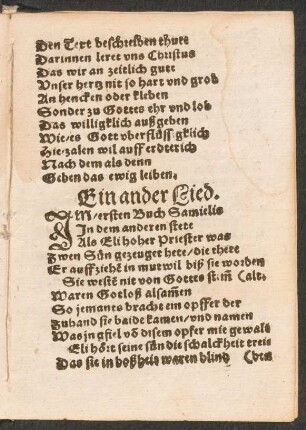 Den Text beschreiben thute
Darinnen leret vns Christus
Das wir an zeitlich gute
Vnser hertz nit so hart vnd grob
An hencken oder kleben
Sonder zu Gottes ehr vnd lob
Das willigklich außgeben
Wie/es Gott vberflüssigklich
Hie zalen wil auff erdterich
Nach dem als denn
Geben das ewig leiben.
Ein ander Lied.
IM ersten Buch Samielis
In dem anderen stete
Als Eli hoher Priester was
Zwen Sün gezeuget hete/die there
Er auffziehē in mutwil biß sie worden
Sie westē nit von Gottes stim̄ (alt,
Waren Gotloß alsam̄en
So jemants bracht ein opffer der
Zuhand sie baide kamen/vnd namen
Was jn gfiel vō disem opfer mit gewalt
Eli hört seine sün die schalckheit treib
Das sie in boßheit waren blind (ven